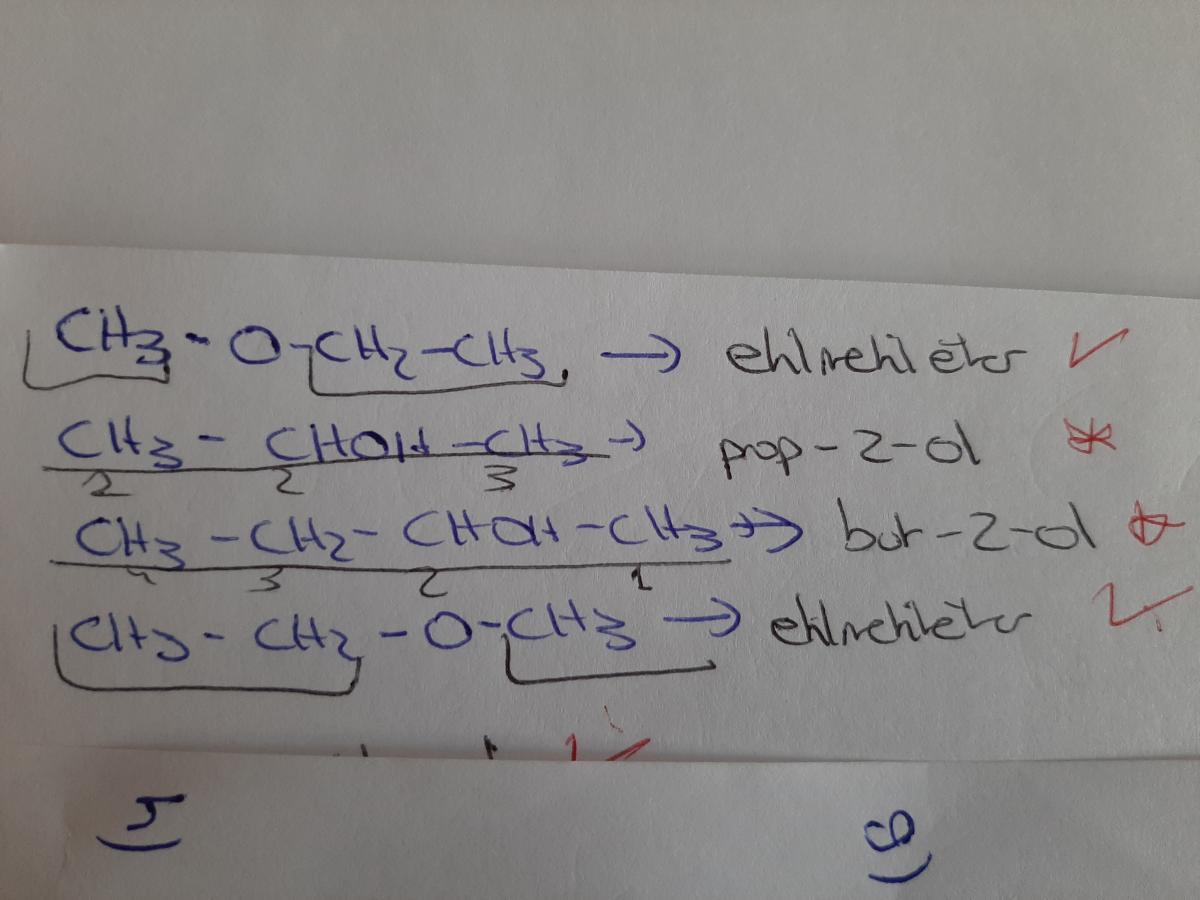 CH3 - O - CH2 - CH3. → ehlmehleter ✓
CH3 - CHOH - CH3 → prop-2-ol
2 2 3
CH3 - CH2 - CHOH - CH3 → but-2-ol
4 3 2 1
CH3 - CH2 - O - CH3 → ehlmehileter ✓
5)